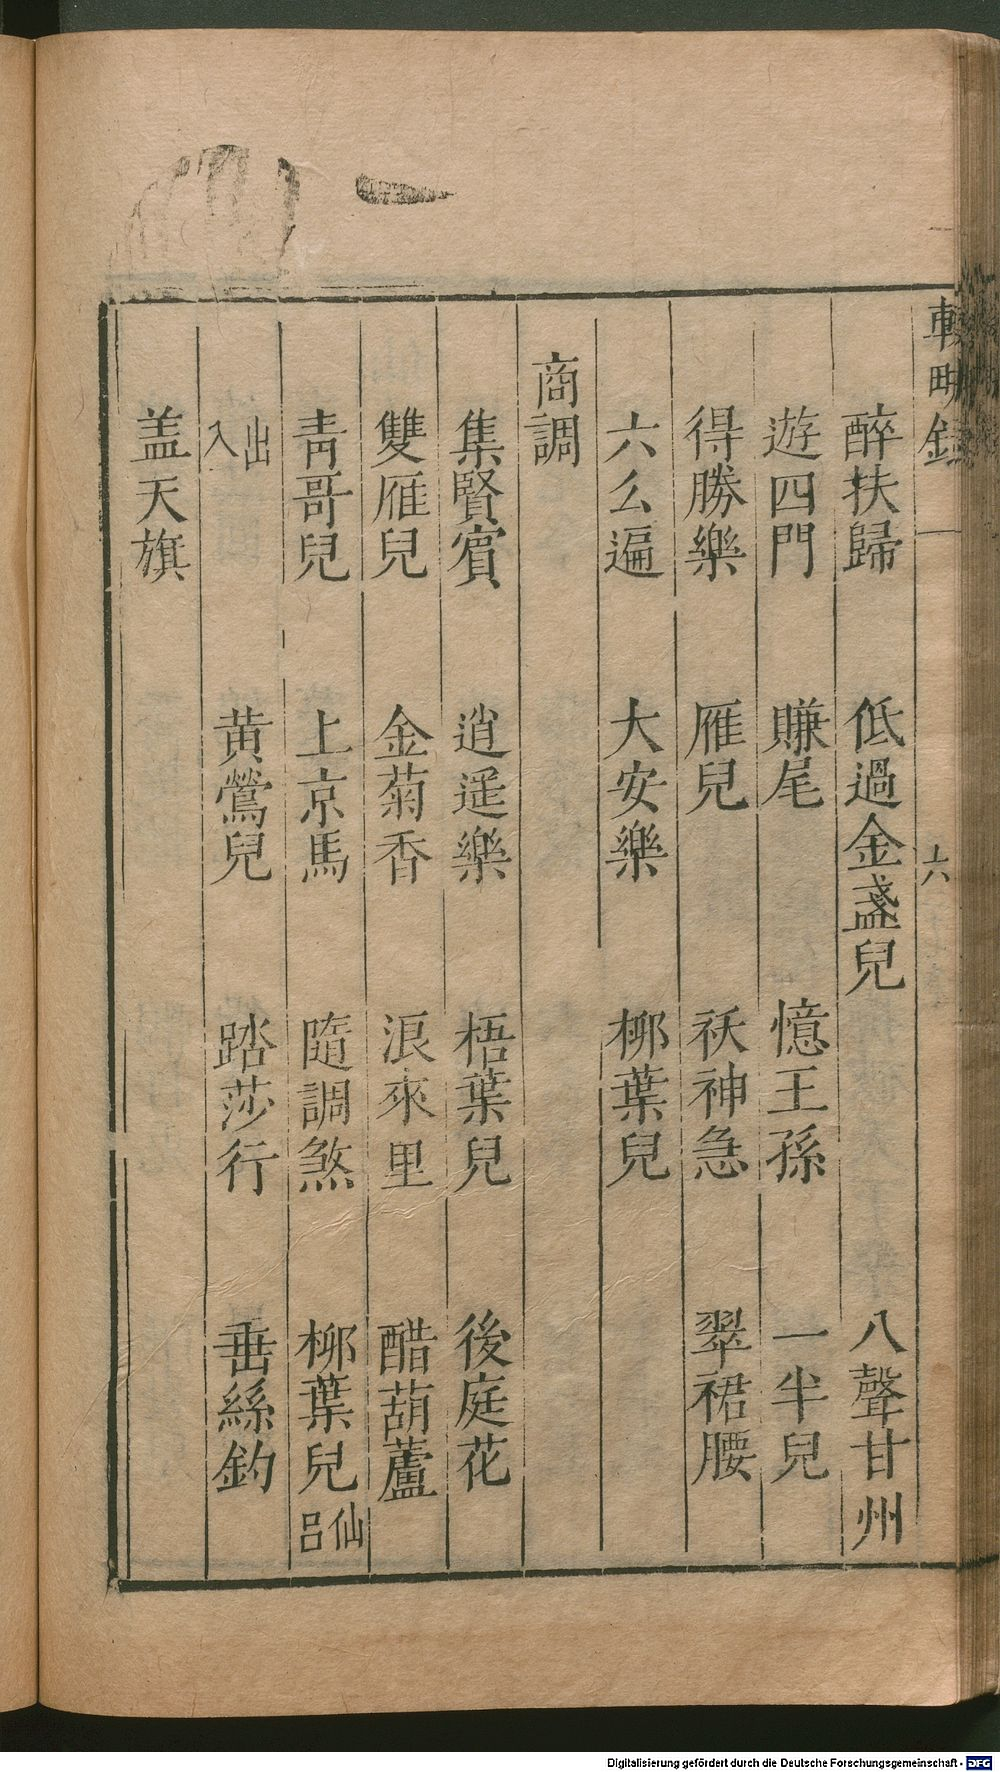 輟畊錄
一
十六
醉扶歸 低過金盞兒 八聲甘州
遊四門 賺尾 憶王孫 一半兒
得勝樂 雁兒 祅神急 翠裙腰
六么遍 大安樂 柳葉兒
商調
集賢賔 逍遥樂 梧葉兒 後庭花
雙雁兒 金菊香 浪來里 醋葫蘆
青哥兒 上京馬 隨調煞 柳葉兒仙呂
出入 黄鶯兒 踏莎行 垂絲釣
盖天旗
Digitalisierung gefördert durch die Deutsche Forschungsgemeinschaft - DFG